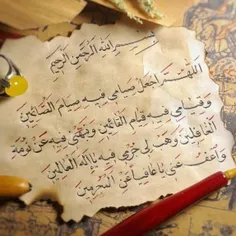 بسم الله الرحمن الرحيم
اللهم اجعل صيامي فيه صيام الصائمين
وقيامي فيه قيام القائمين ونبهني فيه عن نومة
الغافلين وهب لي جرمي فيه يا اله العالمين
واعف عني يا عافيا عن المجرمين